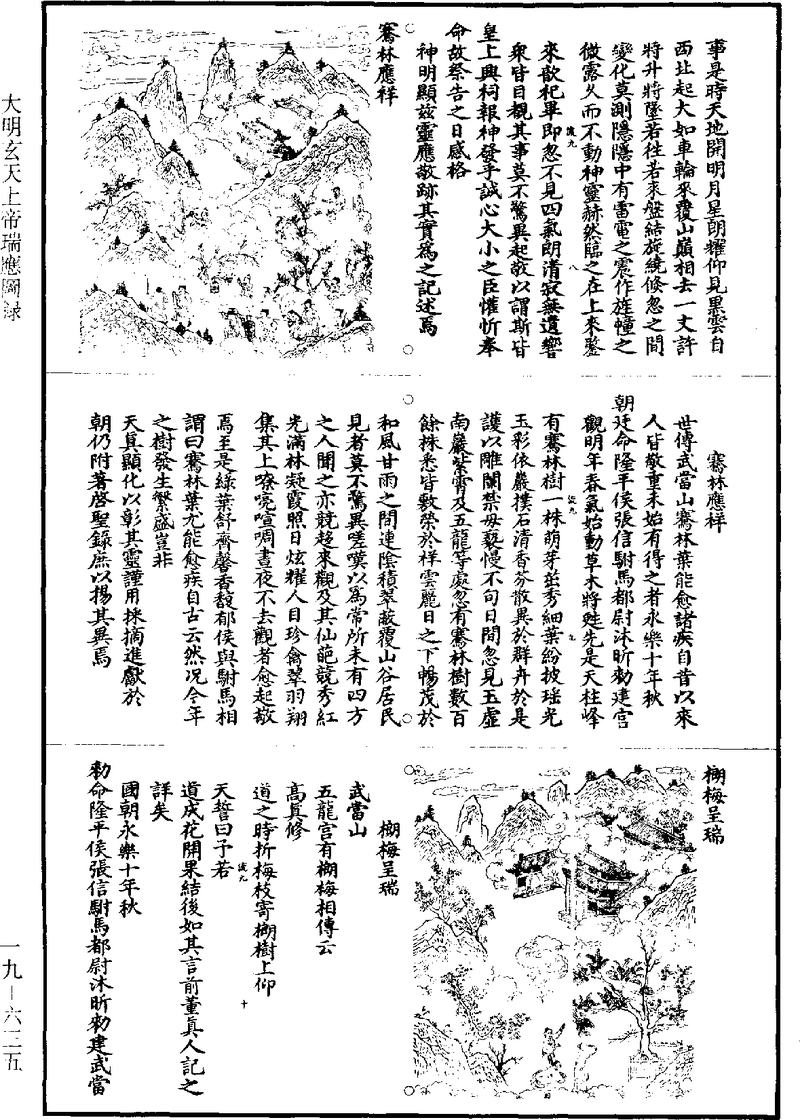 大明玄天上帝瑞應圖錄
一九－六三五
事是時天地開明月星朗耀仰見黑雲自
西北起大如車輪來覆山巔相去一丈許
將升將墜若徃若來盤結旋繞倏忽之間
變化莫測隱隱中有雷電之震作旌幢之
微露久而不動神靈赫然臨之在上來鑒
來歆祀畢即忽不見四氣朗清寂無遺響
衆皆目覩其事莫不驚異起敬以謂斯皆
皇上興祠報神發乎誠心大小之臣懽忻奉
命故祭告之日感格
神明顯茲靈應敬跡其實爲之記述焉
騫林應祥
騫林應祥
世傳武當山騫林葉能愈諸疾自昔以來
人皆敬重未始有得之者永樂十年秋
朝廷命隆平侯張信駙馬都尉沐昕勑建宮
觀明年春氣始動草木將甦先是天柱峰
有騫林樹一株萌芽茁秀細葉紛披瑶光
玉彩依巖撲石清香芬散異於群卉於是
護以雕闌禁毋褻慢不旬日間忽見玉虛
南巖紫霄及五龍等處忽有騫林樹數百
餘株悉皆敷榮於祥雲麗日之下暢茂於
和風甘雨之間連陰積翠蔽覆山谷居民
見者莫不驚異嗟嘆以爲常所未有四方
之人聞之亦競趍來觀及其仙葩競秀紅
光滿林凝霞照日炫耀人目珍禽翠羽翔
集其上嘹喨喧啁晝夜不去觀者愈起敬
焉至是綠葉舒齊馨香馥郁侯與駙馬相
謂曰騫林葉尤能愈疾自古云然況今年
之樹發生繁盛豈非
天真顯化以彰其靈謹用採摘進獻於
朝仍附著啓聖錄庶以揚其異焉
榔梅呈瑞
榔梅呈瑞
武當山
五龍宮有榔梅相傳云
高真修
道之時折梅枝寄榔樹上仰
天誓曰予若
道成花開果結後如其言前董真人記之
詳矣
國朝永樂十年秋
勑命隆平侯張信駙馬都尉沐昕勑建武當